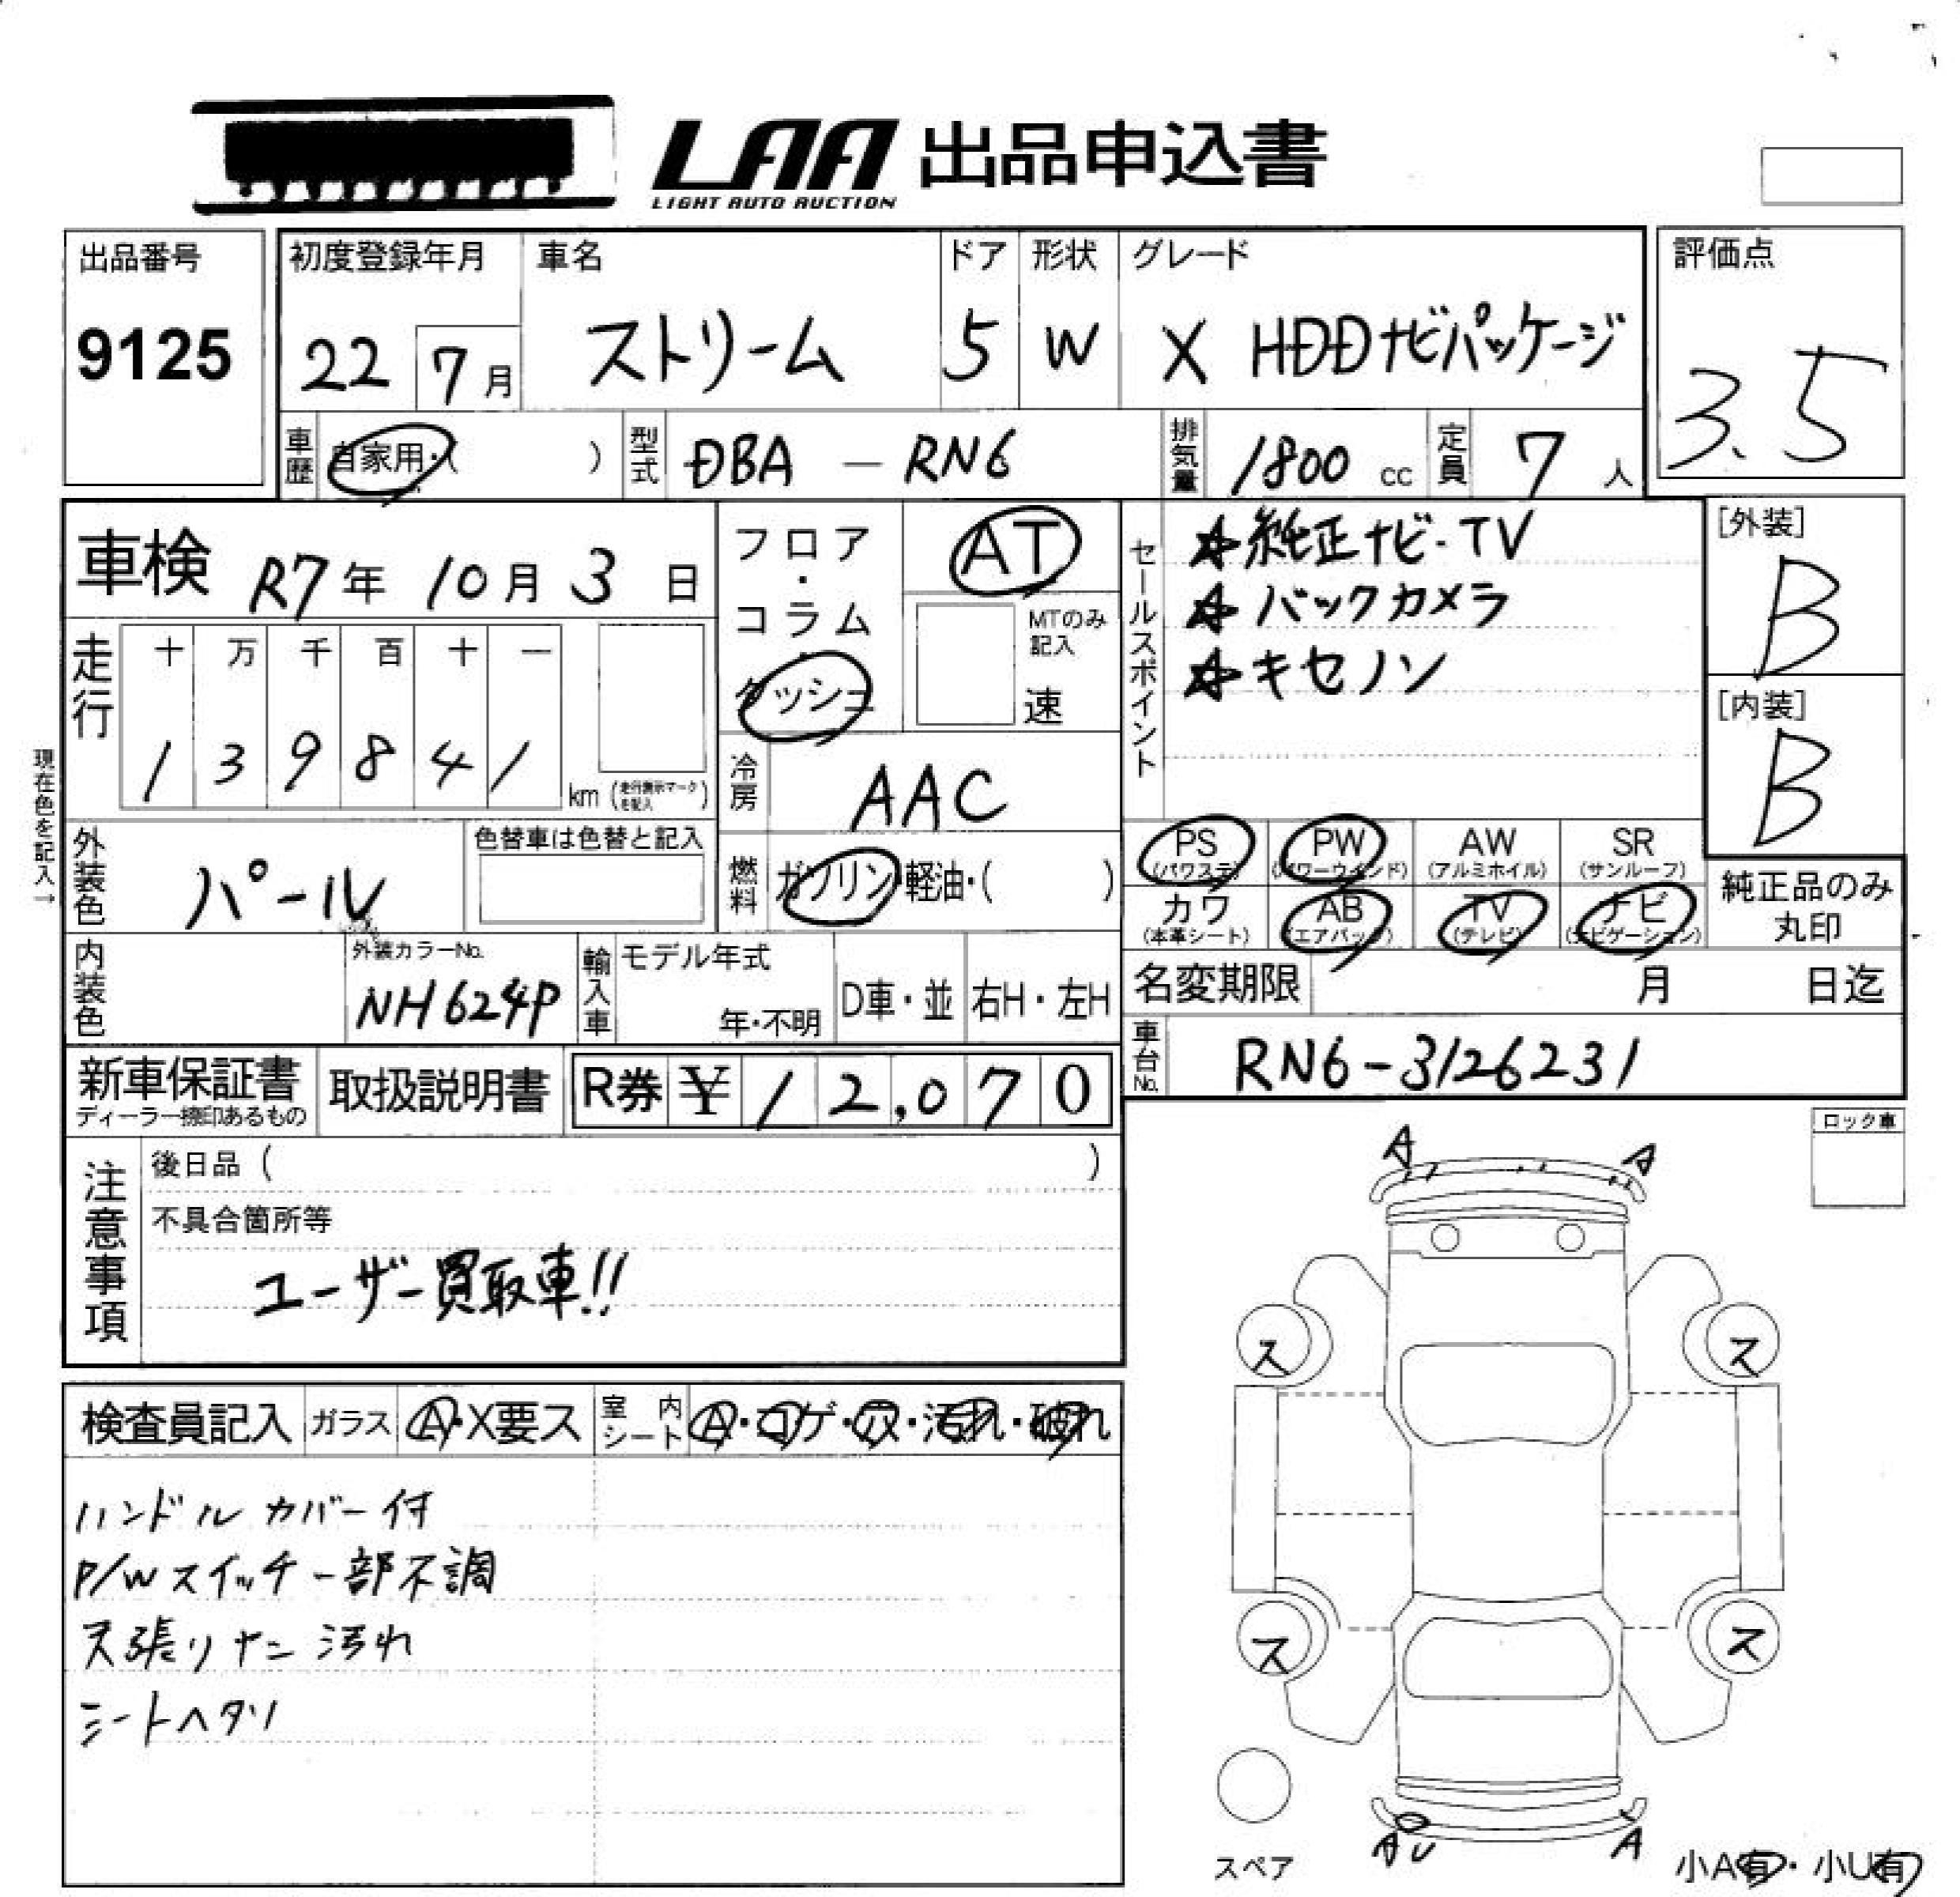 LAA 出品申込書
LIGHT AUTO AUCTION
出品番号
9125
初度登録年月
22 7月
車名
ストリーム
ドア
5
形状
W
グレード
X HDDナビパッケージ
評価点
3.5
車歴
自家用・( )
型式
DBA — RN6
排気量
1800 cc
定員
7 人
車検 R7年 10月 3日
フロア・コラム・ダッシュ
AT
MTのみ記入
速
セールスポイント
☆純正ナビ・TV
☆バックカメラ
☆キセノン
[外装]
B
[内装]
B
走行
十 万 千 百 十 一
1 3 9 8 4 1
km (走行表示マークを記入)
現在色を記入→
冷房
AAC
外装色
パール
色替車は色替と記入
燃料
ガソリン・軽油・( )
PS (パワステ)
PW (パワーウインド)
AW (アルミホイル)
SR (サンルーフ)
カワ (本革シート)
AB (エアバッグ)
TV (テレビ)
ナビ (ナビゲーション)
純正品のみ丸印
内装色
外装カラーNo.
NH624P
輸入車
モデル年式
年・不明
D車・並
右H・左H
名変期限 月 日迄
車台No.
RN6-3126231
新車保証書
ディーラー捺印あるもの
取扱説明書
R券 ¥12,070
ロック車
注意事項
後日品 ( )
不具合箇所等
ユーザー買取車!!
検査員記入
ガラス
A・X要ス
室内シート
A・コゲ・穴・汚れ・破れ
ハンドルカバー付
P/Wスイッチ一部不調
天張りヤニ 汚れ
シートヘタリ
A A
ス ス
ス ス
スペア
A U A
小A有・小U有